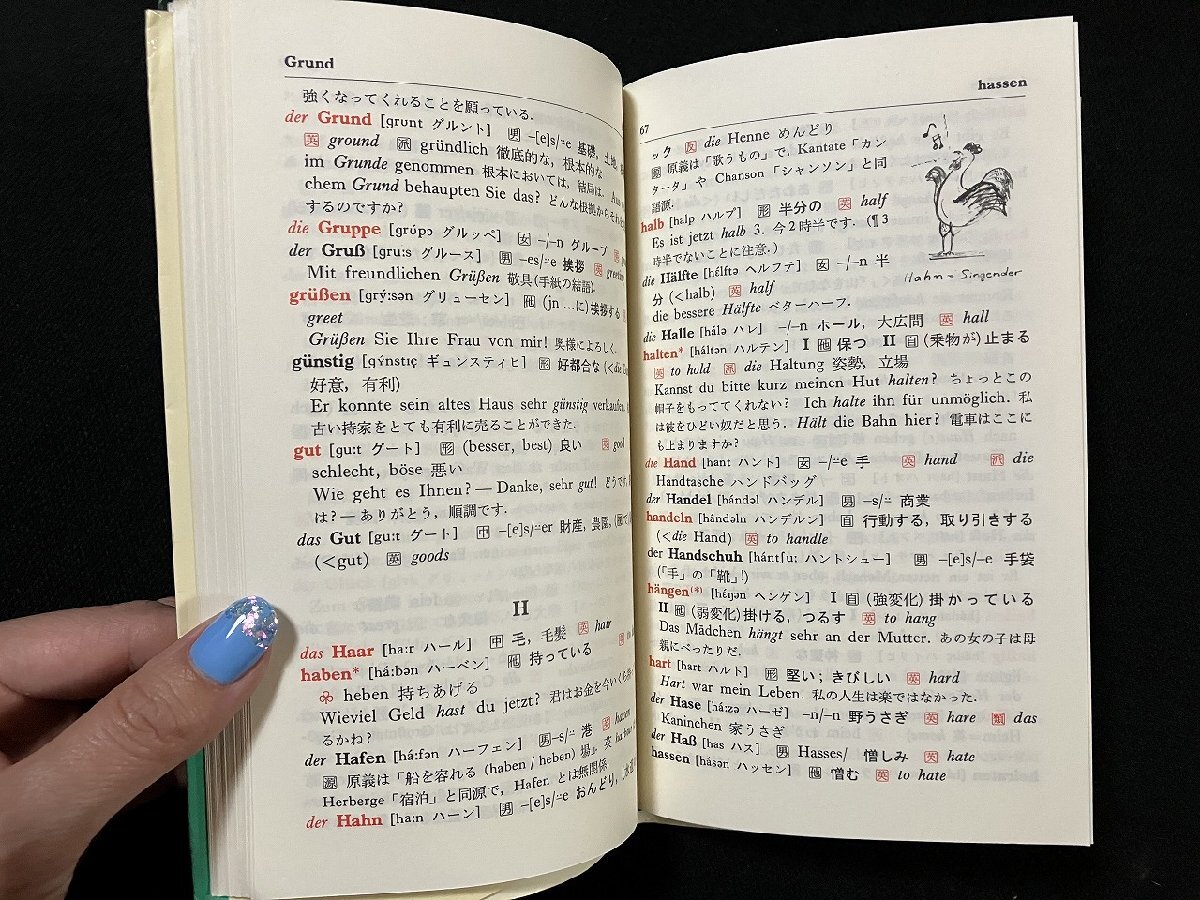 Grund
強くなってくれることを願っている.
der Grund [grʊnt グルント] 男 -[e]s/⸚e 基礎, 土地
英 ground 派 gründlich 徹底的な, 根本的な
im Grunde genommen 根本においては, 結局は.
chem Grund behaupten Sie das? どんな根拠から
するのですか?
die Gruppe [grúpə グルッペ] 女 -/-n グループ
der Gruß [gru:s グルース] 男 -es/⸚e 挨拶 英
Mit freundlichen Grüßen 敬具(手紙の結語)
grüßen [grý:sən グリューセン] 他 (jn …に)挨拶する
greet
Grüßen Sie Ihre Frau von mir! 奥様によろしく.
günstig [gýnstıç ギュンスティヒ] 形 好都合な(<die
好意, 有利)
Er konnte sein altes Haus sehr günstig verkaufen.
古い持家をとても有利に売ることができた.
gut [gu:t グート] 形 (besser, best) 良い
schlecht, böse 悪い
Wie geht es Ihnen? — Danke, sehr gut!
は? — ありがとう, 順調です.
das Gut [gu:t グート] 中 -[e]s/⸚er 財産, 農園,
(<gut) 英 goods
H
das Haar [ha:r ハール] 中 毛, 毛髪 英 hair
haben* [há:bən ハーベン] 他 持っている
heben 持ちあげる
Wieviel Geld hast du jetzt? 君はお金を今いくら
るかね?
der Hafen [há:fən ハーフェン] 男 -s/⸚ 港 英 haven
源 原義は「船を容れる (haben; heben) 場」.
Herberge「宿泊」と同源で, Hafer とは無関係
der Hahn [ha:n ハーン] 男 -[e]s/⸚e おんどり,
67
hassen
ック 反 die Henne めんどり
源 原義は「歌うもの」で, Kantate「カン
タータ」や Chanson「シャンソン」と同
語源.
Hahn = Singender
halb [halp ハルプ] 形 半分の 英 half
Es ist jetzt halb 3. 今2時半です. (¶3
時半でないことに注意.)
die Hälfte [hélftə ヘルフテ] 女 -/-n 半
分 (<halb) 英 half
die bessere Hälfte ベターハーフ.
die Halle [hálə ハレ] -/-n ホール, 大広間 英 hall
halten* [háltən ハルテン] I 他 保つ II 自 (乗物が)止まる
英 to hold 派 die Haltung 姿勢, 立場
Kannst du bitte kurz meinen Hut halten? ちょっとこの
帽子をもっててくれない? Ich halte ihn für unmöglich. 私
は彼をひどい奴だと思う. Hält die Bahn hier? 電車はここに
も止まりますか?
die Hand [hant ハント] 女 -/⸚e 手 英 hand 派 die
Handtasche ハンドバッグ
der Handel [hándəl ハンデル] 男 -s/⸚ 商業
handeln [hándəln ハンデルン] 自 行動する, 取り引きする
(<die Hand) 英 to handle
der Handschuh [hántʃu: ハントシュー] 男 -[e]s/-e 手袋
(「手」の「靴」!)
hängen(*) [héŋən ヘンゲン] I 自 (強変化)掛かっている
II 他 (弱変化)掛ける, つるす 英 to hang
Das Mädchen hängt sehr an der Mutter. あの女の子は母
親にべったりだ.
hart [hart ハルト] 形 堅い; きびしい 英 hard
Hart war mein Leben 私の人生は楽ではなかった.
der Hase [há:zə ハーゼ] -n/-n 野うさぎ 英 hare 類 das
Kaninchen 家うさぎ
der Haß [has ハス] 男 Hasses/ 憎しみ 英 hate
hassen [hásən ハッセン] 他 憎む 英 to hate